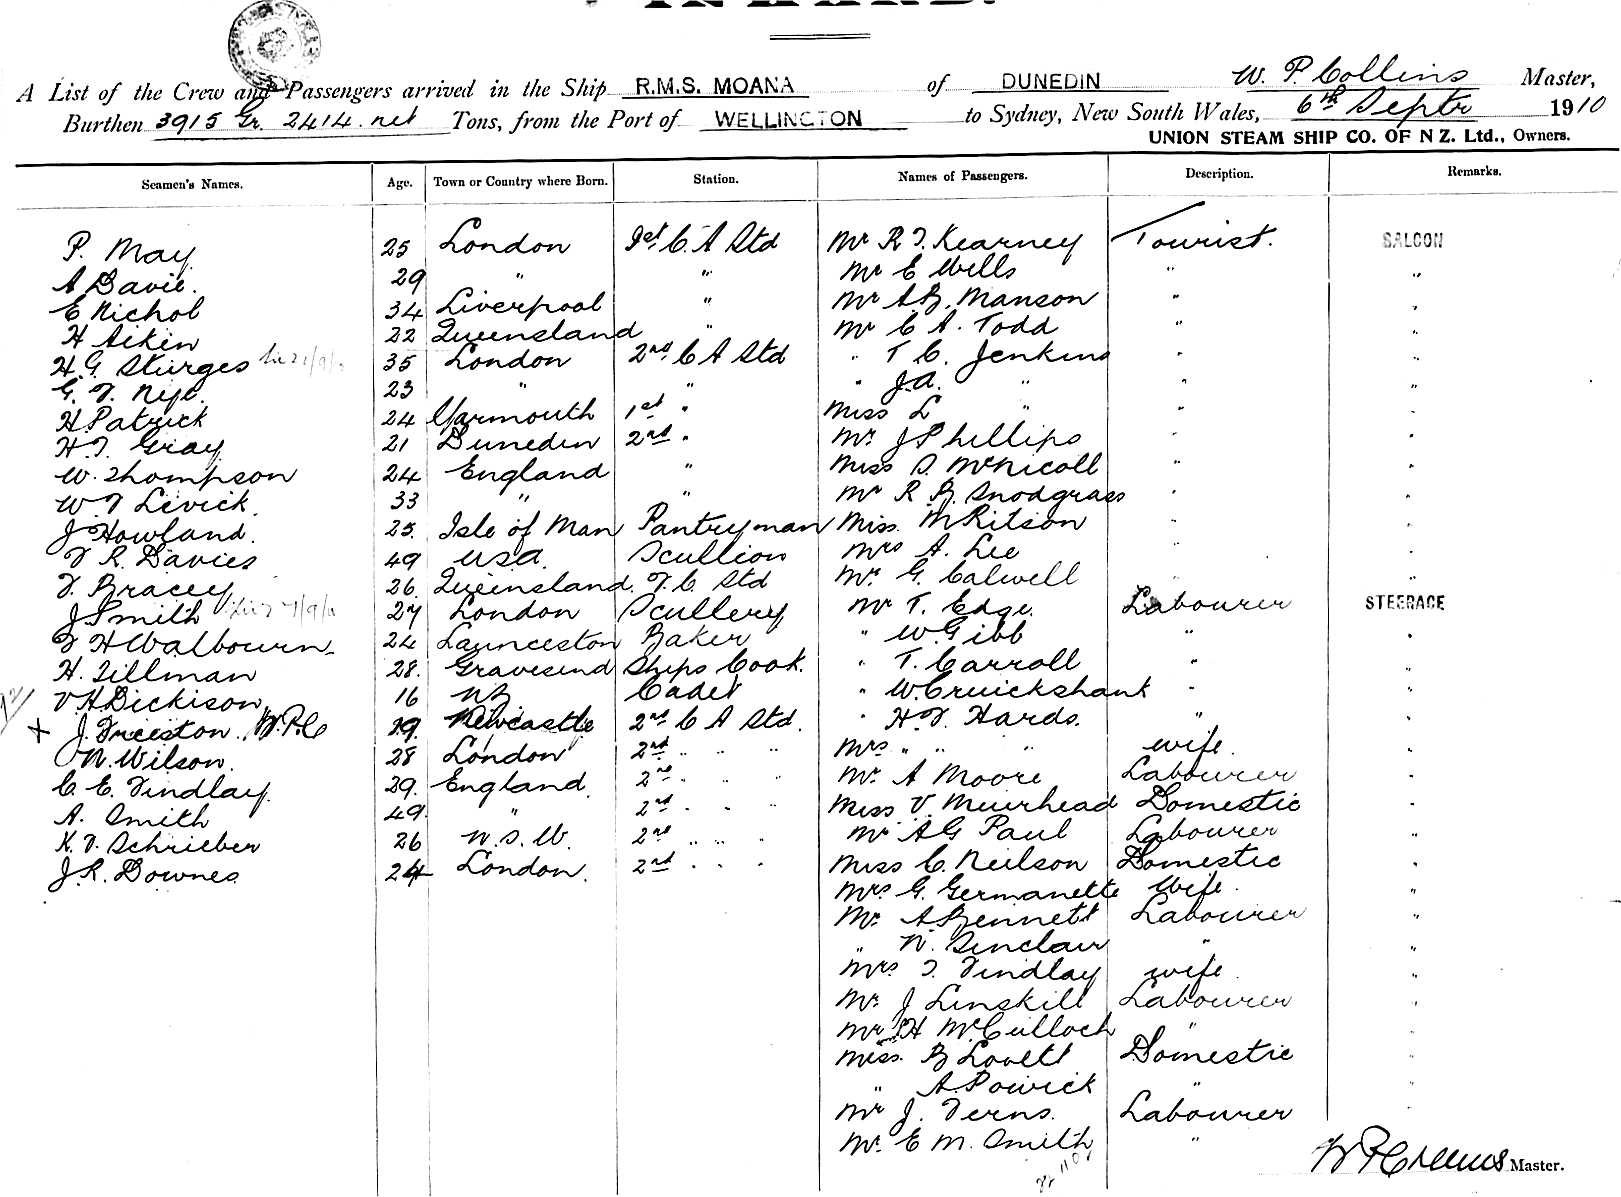 A List of the Crew and Passengers arrived in the Ship R.M.S. MOANA of DUNEDIN W. P. Collins Master,
Burthen 3915 Gr. 2414. net Tons, from the Port of WELLINGTON to Sydney, New South Wales, 6th Septr 1910
UNION STEAM SHIP CO. OF N Z. Ltd., Owners.
Seamen's Names. Age. Town or Country where Born. Station. Names of Passengers. Description. Remarks.
P. May 25 London 1st C. A Std Mr R T. Kearney Tourist. SALOON
A Davie. 29 " " Mr E Wells " "
E Nichol 34 Liverpool " Mr A B. Manson " "
H Aiken 22 Queensland " Mr C A. Todd " "
H. G. Sturges 35 London 2nd C A Std " T C. Jenkins " "
G. F. 23 " " " J. A. " " "
H Patrick 24 Yarmouth 1st " Miss L " " "
H. T. Gray 21 Dunedin 2nd " Mr J Phillips " "
W. Thompson 24 England " Miss D. McNicoll " "
W F Levick. 33 " " Mr R B. Snodgrass " "
J Howland. 25. Isle of Man Pantryman Miss. M Ritson " "
F R. Davies 49 USA. Scullion Mrs A. Lee " "
F. Bracey 26. Queensland. F. C Std Mr G. Calwell " "
J Smith 27 London Scullery Mr T. Edge. Labourer STEERAGE
F H Walbourn 24 Launceston Baker " W Gibb " "
H. Tillman 28. Gravesend Ships Cook. " T. Carroll " "
V. H Dickison 16 NZ Cadet " W. Cruickshank " "
+ J. Freeston. W. P. C 19. Newcastle 2nd C A Std. " H F. Hards. " "
N. Wilson. 28 London 2nd " " " Mrs " " " wife. "
C. E. Findlay. 29. England. 2nd " " Mr A Moore Labourer "
A. Smith 49. " 2nd " " " Miss V. Muirhead Domestic "
K. F. Schrieber 26 N. S. W. 2nd " " " Mr A G Paul Labourer "
J. R. Downes 24 London. 2nd " " " Miss C. Neilson Domestic "
Mrs G. Germanette Wife. "
Mr. A Bennett Labourer "
" N. Sinclair " "
Mrs T. Findlay wife. "
Mr. J Linskill Labourer "
Mr H McCulloch " "
Miss. B Lovell Domestic "
" A. Powick " "
Mr J. Ferns. Labourer "
Mr. E M. Smith "
W P Collins Master.